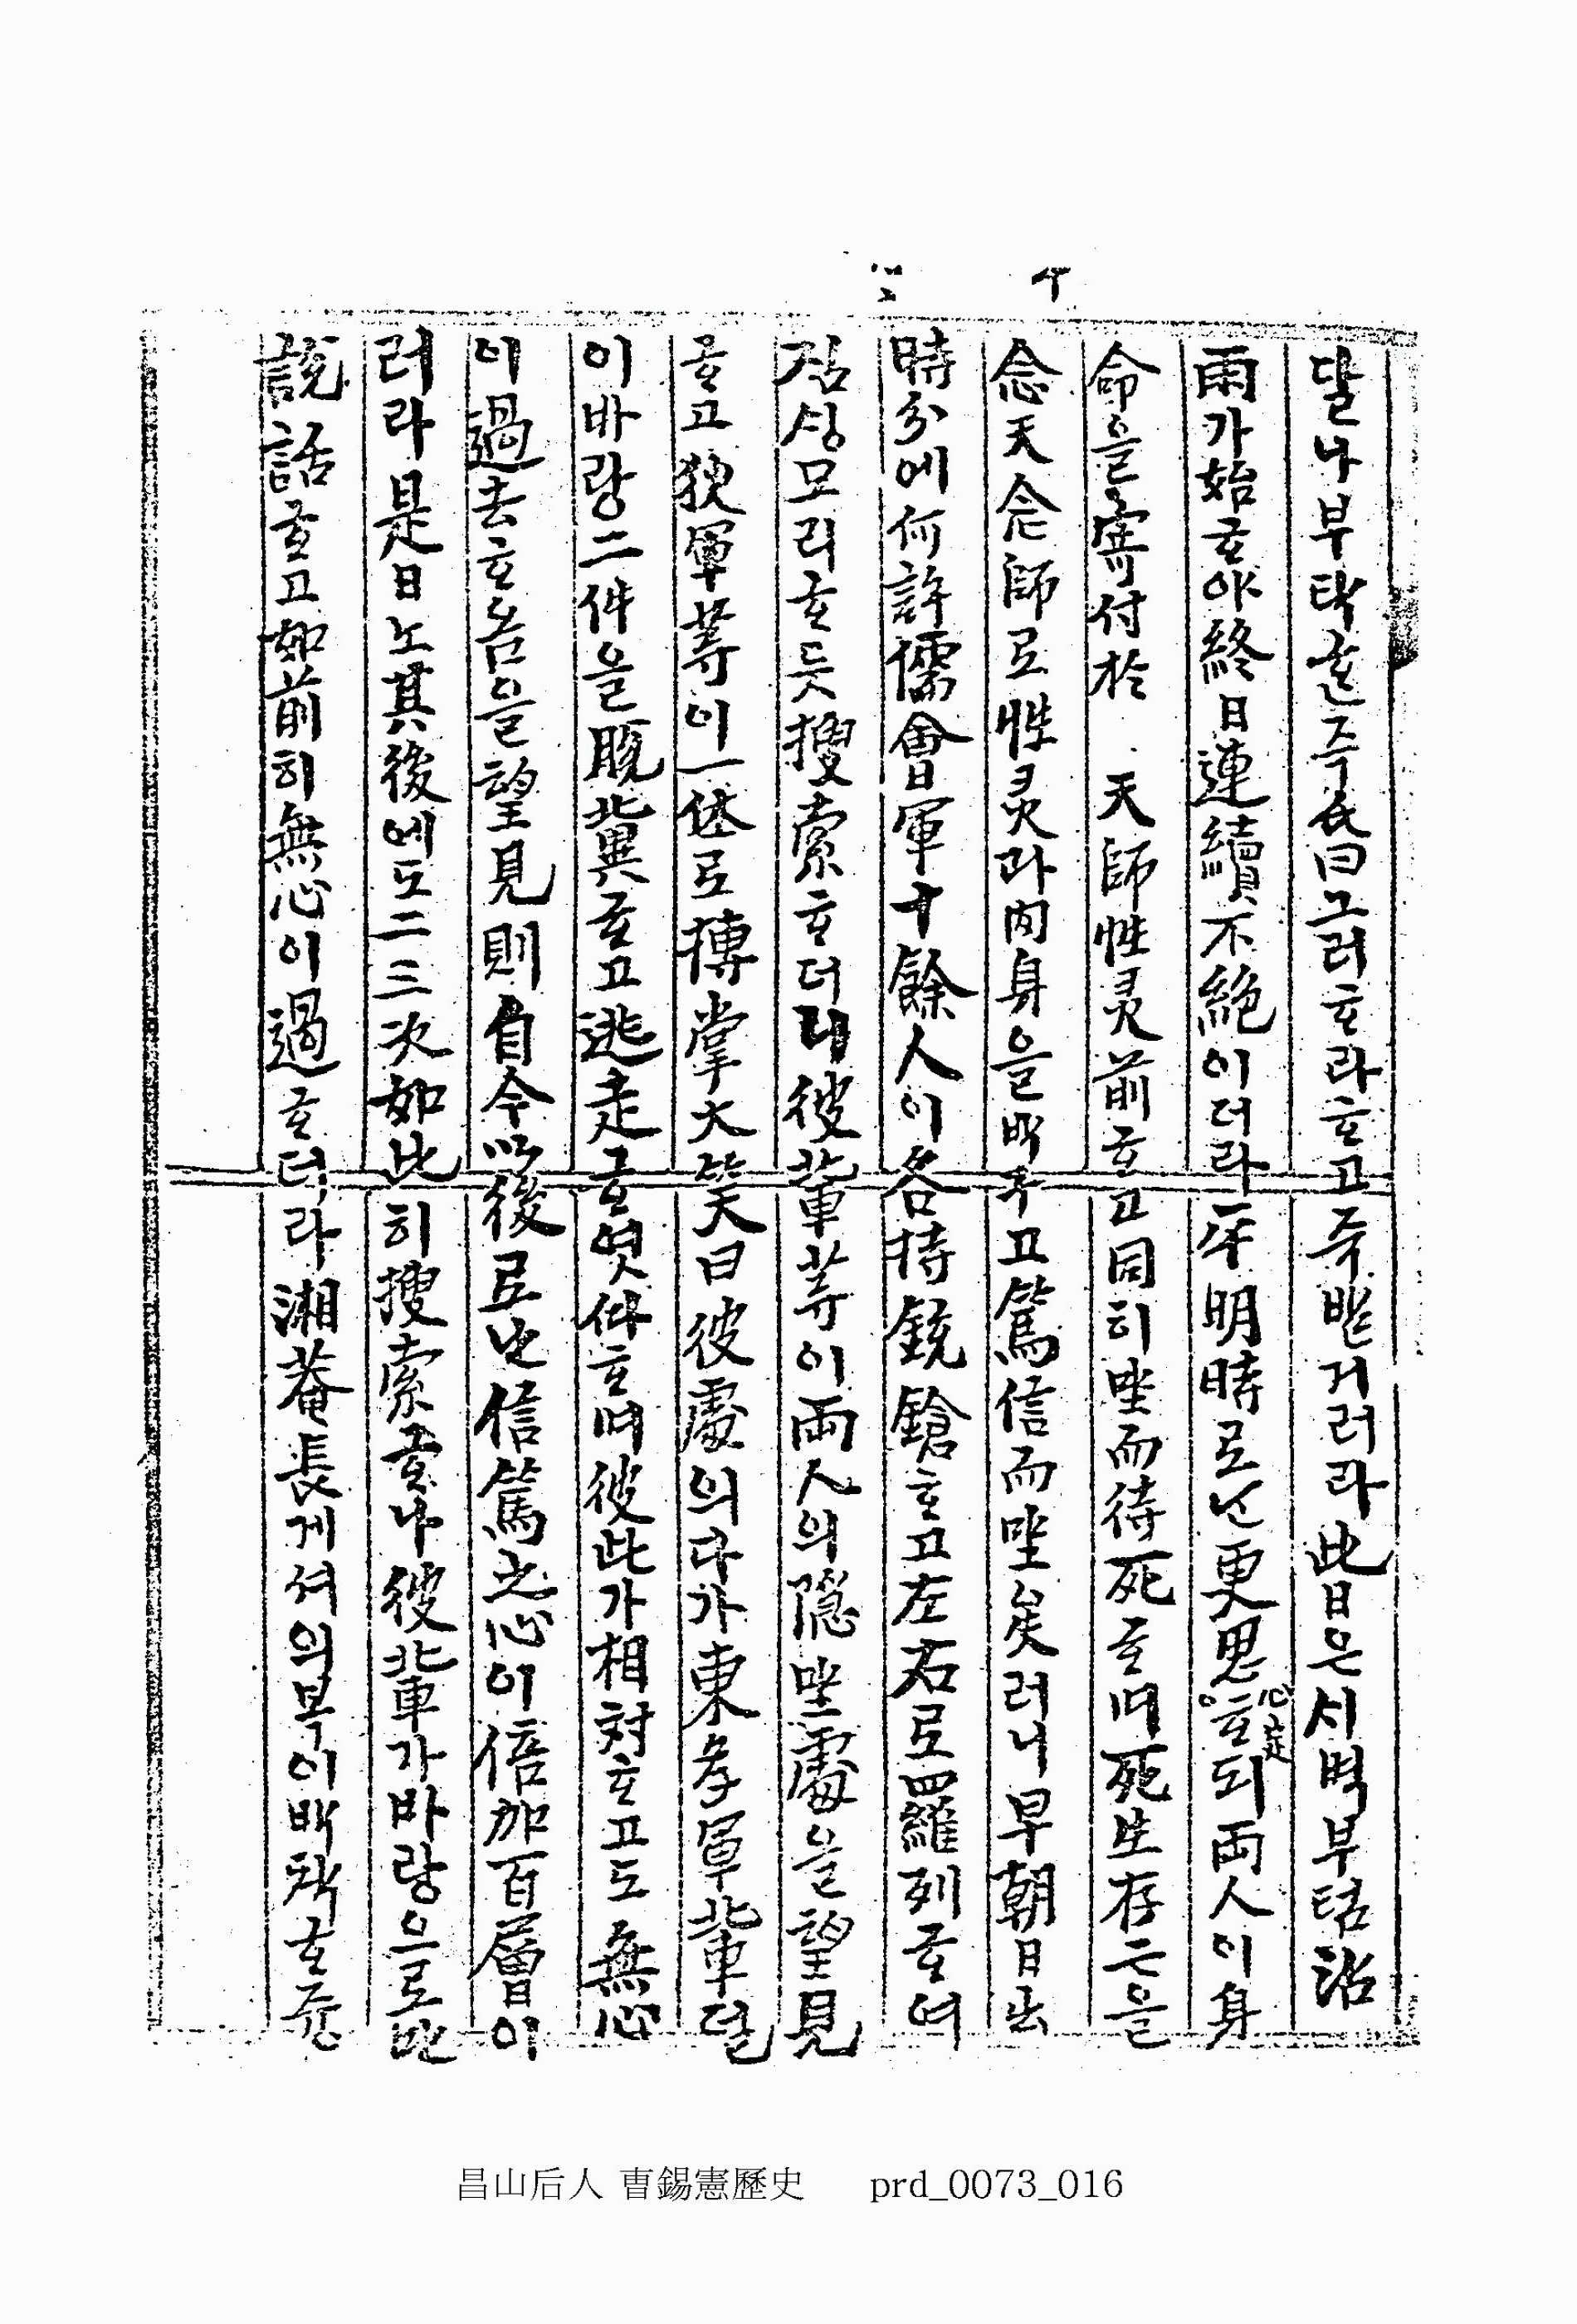 달나부탁ᄒᆞᆫ즉 氏曰그러ᄒᆞ라ᄒᆞ고 즉 거러라 此日은시벽부텀 沾
雨가始ᄒᆞ야終日連續不絶이더라 平明時로 更思ᄒᆞ되 心定 両人이身
命을寄付於 天師性灵前ᄒᆞ고同히坐而待死ᄒᆞ며死生存亡을
念天念師로性灵라肉身을밧구고篤信而坐矣러니早朝日出
時分에何許儒會軍十餘人이各持銃鎗ᄒᆞ고左右로羅列ᄒᆞ여
짐싱모리ᄒᆞ듯搜索ᄒᆞ더니彼輩等이両人의隠坐處을望見
ᄒᆞ고狄軍等이一体로搏掌大笑曰彼處의다가東孝軍輩덜
이바랑二件을脫冀ᄒᆞ고逃走ᄒᆞ엿다ᄒᆞ며彼此가相対ᄒᆞ고도無心
이過去ᄒᆞ옴을望見則自今以後로 信篤之心이倍加百層이
러라是日노其後에도二三次如此히搜索ᄒᆞ나彼輩가바랑으로만
說話ᄒᆞ고如前히無心이過ᄒᆞ더라湘菴長게셔의복이빅착ᄒᆞ
昌山后人 曺錫憲歷史 prd_0073_016